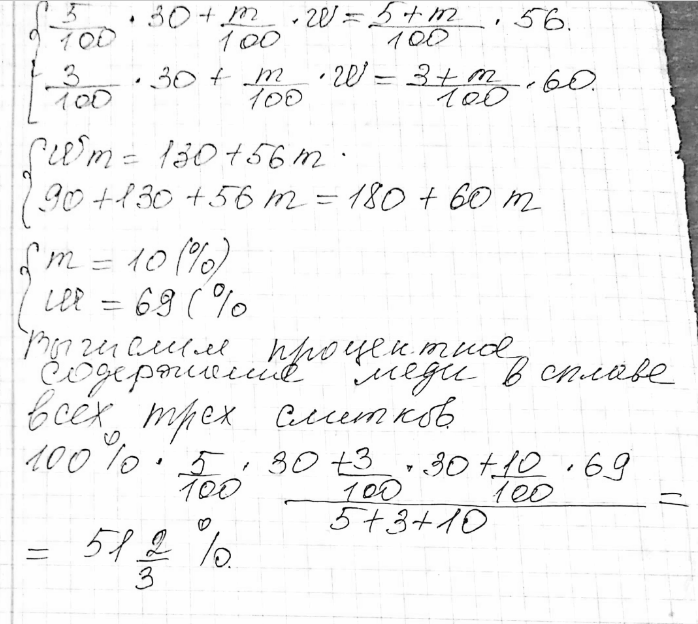 5/100 · 30 + m/100 · w = 5+m/100 · 56.
3/100 · 30 + m/100 · w = 3+m/100 · 60.
wm = 130 + 56m.
90 + 130 + 56m = 180 + 60m
m = 10 (%)
w = 69 (%
Вычислим процентное
содержание меди в сплаве
всех трех слитков.
100% · 5/100 · 30 + 3/100 · 30 + 10/100 · 69 / 5+3+10 =
= 51 2/3 %.